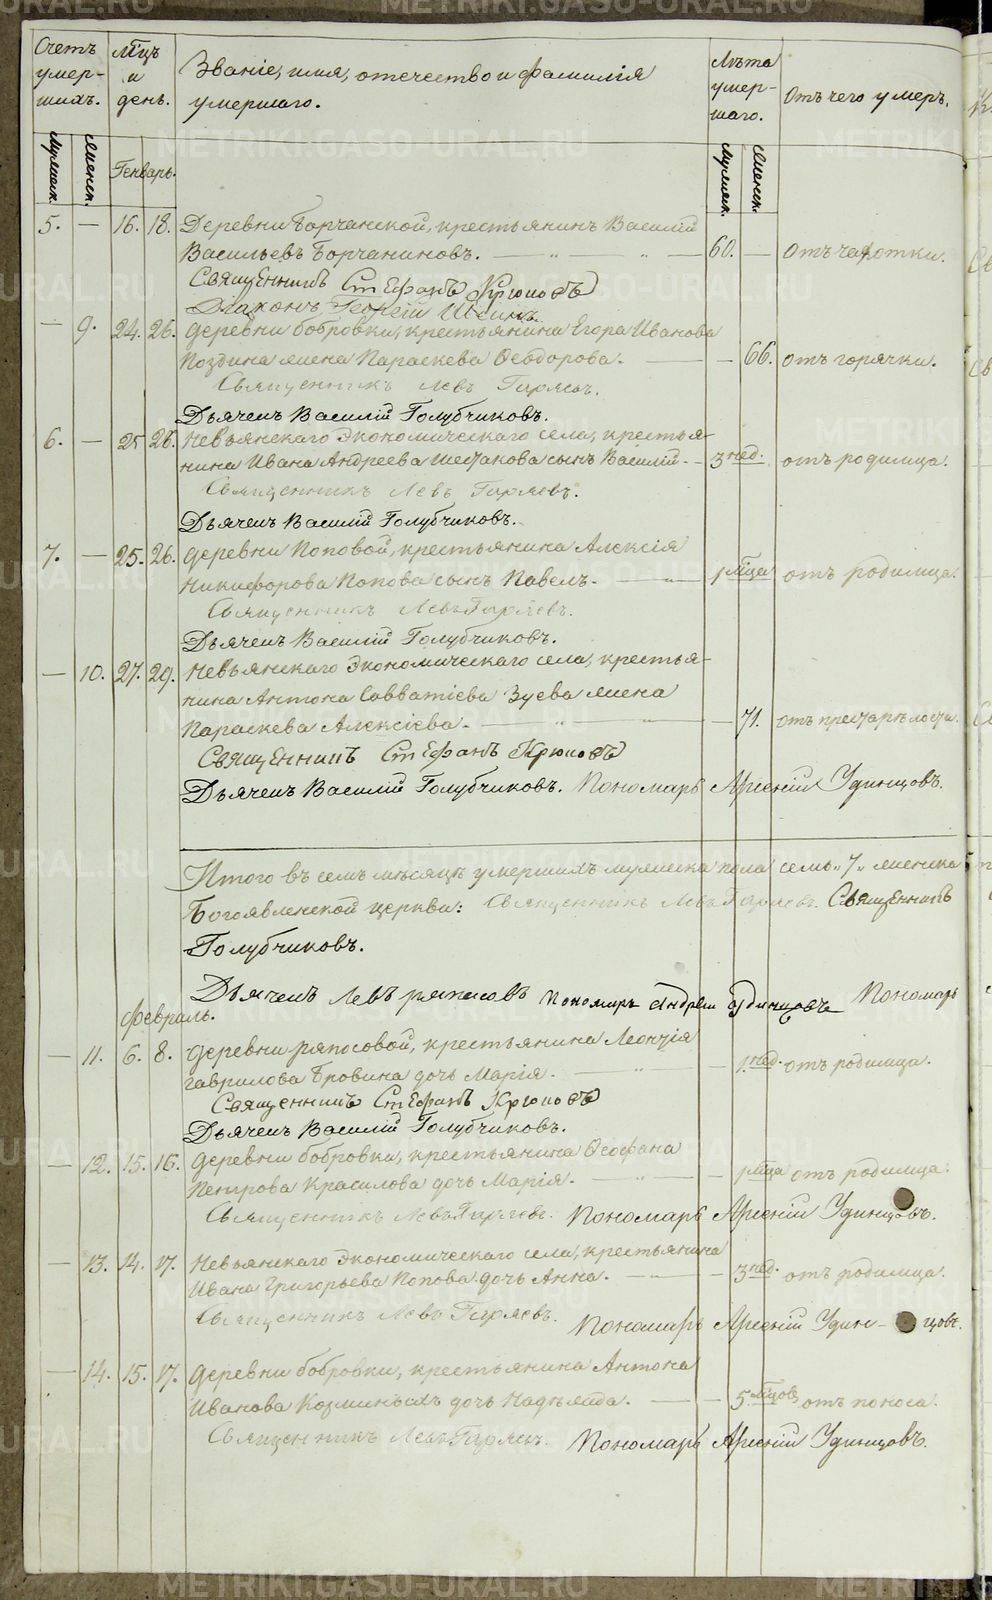 Счетъ умер-шихъ.
Мцъ и день.
Званіе, имя, отечество и фамилія умершаго.
Лѣта умер-шаго.
Отъ чего умеръ.
Мужеск. Женск. Генварь. Мужеск. Женск.
5. — 16. 18. Деревни Борчанской, крестьянинъ Василій
Васильевъ Борчаниновъ. — 60. — отъ чахотки.
Священникъ Стефанъ Крюковъ
Діаконъ Георгій
— 9. 24. 26. деревни бобровки, крестьянина Егора Иванова
Поздина жена Параскева Ѳеодорова. — 66. отъ горячки.
Священникъ Левъ Гаряевъ.
Дьячекъ Василій Голубчиковъ.
6. — 25 26. Невьянскаго Экономическаго села, крестья-
нина Ивана Андреева Шестакова сынъ Василій. — 3 нед. отъ родимца.
Священникъ Левъ Гаряевъ.
Дьячекъ Василій Голубчиковъ.
7. — 25. 26. деревни Поповой, крестьянина Алексія
Никифорова Попова сынъ Павелъ. — 1 мца отъ родимца.
Священникъ Левъ Гаряевъ.
Дьячекъ Василій Голубчиковъ.
— 10. 27. 29. Невьянскаго Экономическаго села, крестья-
нина Антона Савватіева Зуева жена
Параскева Алексіева. — 71. отъ престарѣлости.
Священникъ Стефанъ Крюковъ
Дьячекъ Василій Голубчиковъ. Пономарь Арсеній Удинцовъ.
Итого въ семъ мѣсяцѣ умершихъ мужеска пола семь „7„ женска
Богоявленской церкви: Священникъ Левъ Гаряевъ. Священникъ
Голубчиковъ.
Дьячекъ Левъ ряпасовъ Пономарь Андрей Удинцовъ Пономарь
февраль.
— 11. 6. 8. деревни ряпосовой, крестьянина Леонтія
гаврилова Бровина дочь Марія. — 1. нед. отъ родимца.
Священникъ Стефанъ Крюковъ
Дьячекъ Василій Голубчиковъ.
— 12. 15. 16. деревни бобровки, крестьянина Ѳеофана
Петрова Красилова дочь Марія. — 1 мца отъ родимца.
Священникъ Левъ Гаряевъ. Пономарь Арсеній Удинцовъ.
— 13. 14. 17. Невьянскаго Экономическаго села, крестьянина
Ивана Григорьева Попова дочь Анна. — 3 нед. отъ родимца.
Священникъ Левъ Гаряевъ. Пономарь Арсеній Удин-цовъ.
— 14. 15. 17. деревни бобровки, крестьянина Антона
Иванова Козминыхъ дочь Надежда. — 5 мцовъ отъ поноса.
Священникъ Левъ Гаряевъ. Пономарь Арсеній Удинцовъ.
METRIKI.GASO-URAL.RU